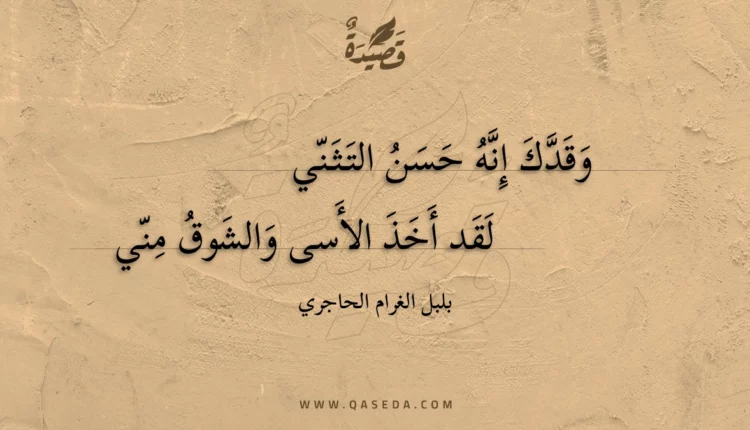 قَصِيدَةٌ
وَقَدَّكَ إِنَّهُ حَسَنُ التَثَنّي
لَقَد أَخَذَ الأَسى وَالشَوقُ مِنّي
بلبل الغرام الحاجري
WWW.QASEDA.COM